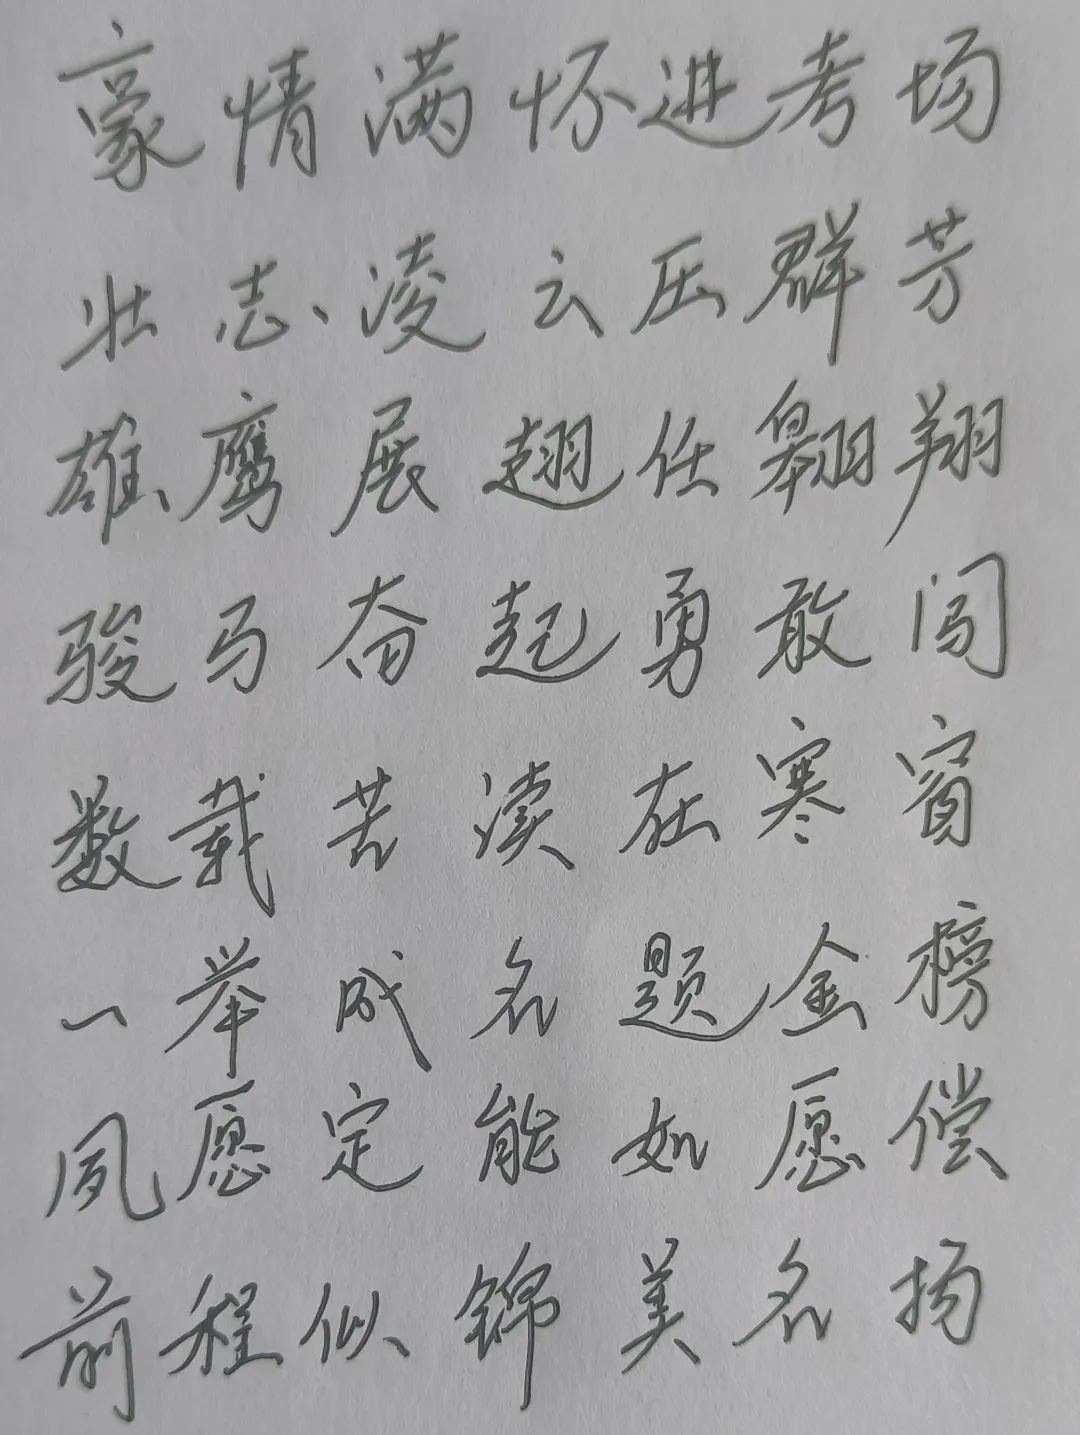 豪情满怀进考场
壮志凌云压群芳
雄鹰展翅任翱翔
骏马奋起勇敢闯
数载苦读在寒窗
一举成名题金榜
夙愿定能如愿偿
前程似锦美名扬